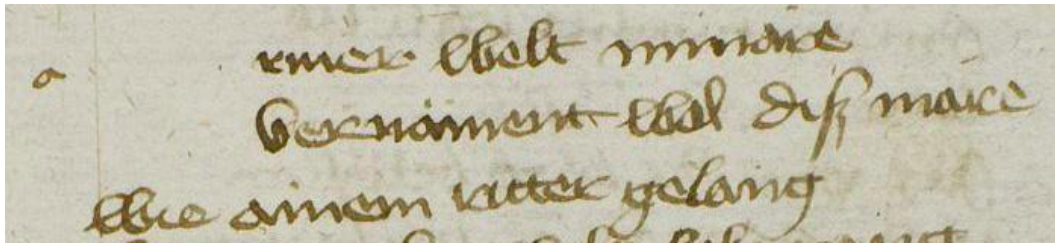 a rmer welt minnare
vernäment wol disz mare
Wie ainem ritter gelang